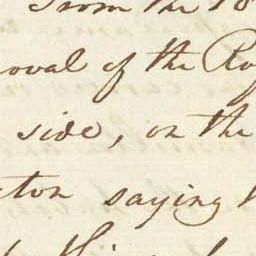 from the
oval of the Ro
side, on the
ton saying